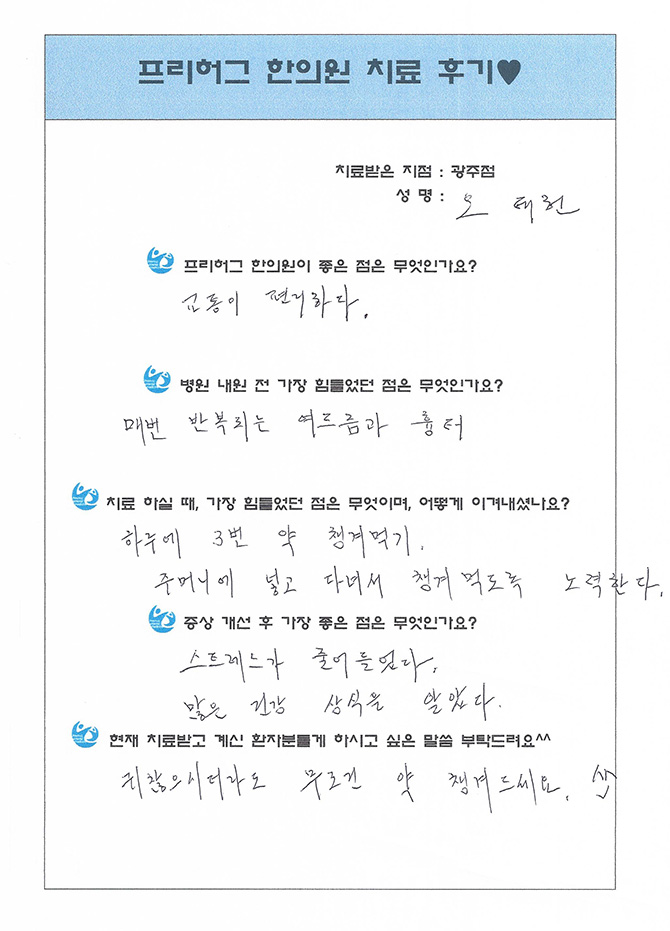 프리허그 한의원 치료 후기♥
치료받은 지점 : 광주점
성 명 : 오 태헌
프리허그 한의원이 좋은 점은 무엇인가요?
교통이 편리하다.
병원 내원 전 가장 힘들었던 점은 무엇인가요?
매번 반복되는 여드름과 흉터
치료 하실 때, 가장 힘들었던 점은 무엇이며, 어떻게 이겨내셨나요?
하루에 3번 약 챙겨먹기.
주머니에 넣고 다녀서 챙겨 먹도록 노력한다.
증상 개선 후 가장 좋은 점은 무엇인가요?
스트레스가 줄어들었다.
많은 건강 상식을 알았다.
현재 치료받고 계신 환자분들게 하시고 싶은 말씀 부탁드려요^^
귀찮으시더라도 무조건 약 챙겨드세요.